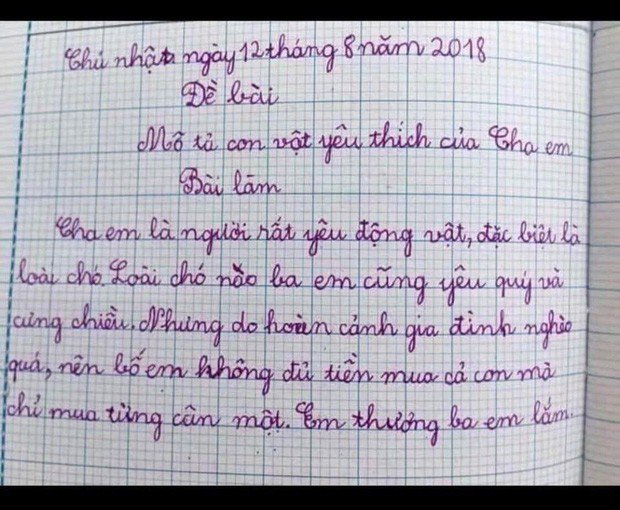 Chủ nhật ngày 12 tháng 8 năm 2018
Đề bài
Mô tả con vật yêu thích của Cha em
Bài làm
Cha em là người rất yêu động vật, đặc biệt là
loài chó. Loài chó nào ba em cũng yêu quý và
cưng chiều. Nhưng do hoàn cảnh gia đình nghèo
quá, nên bố em không đủ tiền mua cả con mà
chỉ mua từng cân một. Em thương ba em lắm.